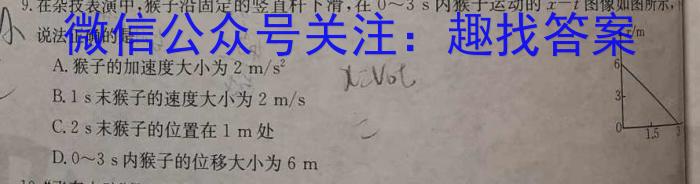 9. 在杂技表演中,猴子沿固定的竖直杆下滑,在 0~3 s 内猴子运动的 x-t 图像如图所示,
说法正确的是
微信公众号关注：趣找答案
A. 猴子的加速度大小为 2 m/s²
B. 1 s 末猴子的速度大小为 2 m/s
C. 2 s 末猴子的位置在 1 m 处
D. 0~3 s 内猴子的位移大小为 6 m
x=v₀t
x/m
6
3
0 1.5 3